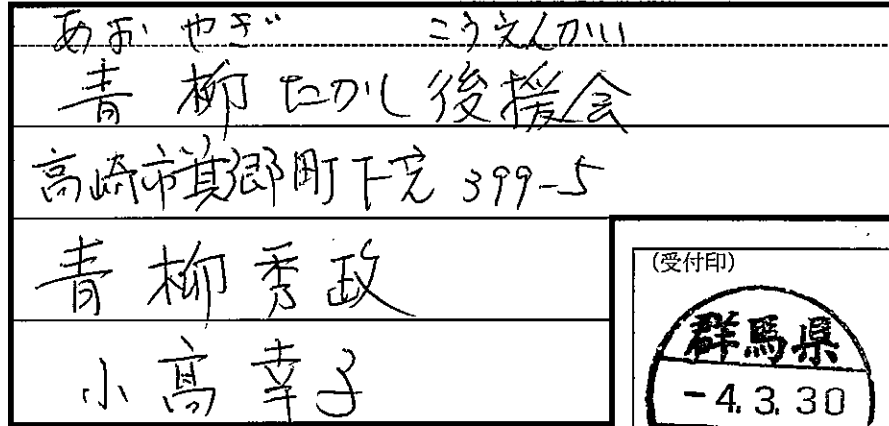 あおやぎ こうえんかい
青柳たかし後援会
高崎市箕郷町下芝 399-5
青柳秀政
小高幸子
(受付印)
群馬県
-4.3.30